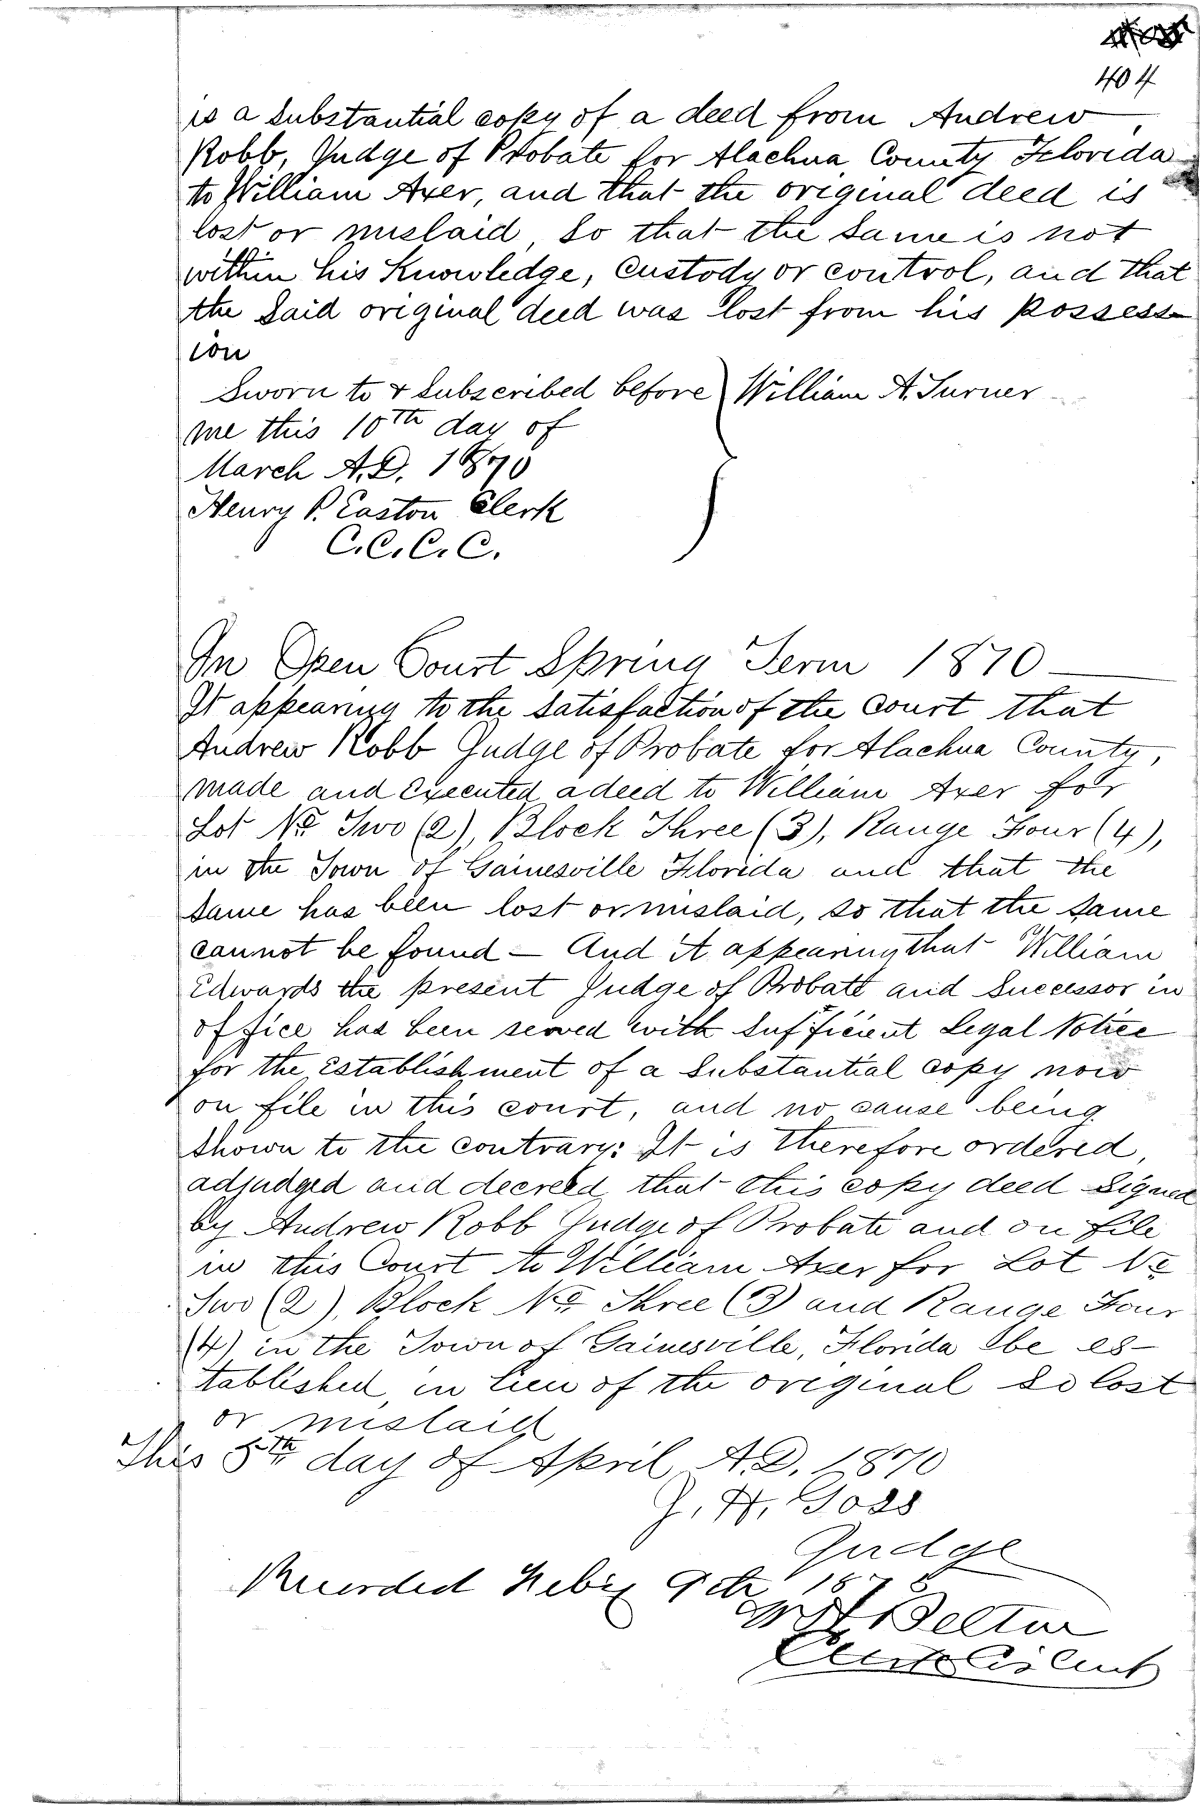 404
is a substantial copy of a deed from Andrew
Robb, Judge of Probate for Alachua County Florida
to William Axer, and that the original deed is
lost or mislaid, so that the same is not
within his Knowledge, custody or control, and that
the said original deed was lost from his possess-
ion
Sworn to & Subscribed before } William A. Turner
me this 10th day of
March A.D. 1870
Henry P. Easton Clerk
C.C.C.C.
In Open Court Spring Term 1870
It appearing to the satisfaction of the court that
Andrew Robb Judge of Probate for Alachua County,
made and executed a deed to William Axer for
Lot No Two (2), Block Three (3), Range Four (4),
in the Town of Gainesville Florida and that the
same has been lost or mislaid, so that the same
cannot be found — And it appearing that William
Edwards the present Judge of Probate and Successor in
office has been served with sufficient Legal Notice
for the establishment of a substantial copy now
on file in this court, and no cause being
shown to the contrary: It is therefore ordered,
adjudged and decreed that this copy deed signed
by Andrew Robb Judge of Probate and on file
in this Court to William Axer for Lot No
Two (2), Block No Three (3) and Range Four
(4) in the Town of Gainesville, Florida be es-
tablished, in lieu of the original so lost
or mislaid
This 5th day of April A.D. 1870
J. H. Goss
Judge
Recorded Feby 9th 1875
Belton
Clerk Cir Court